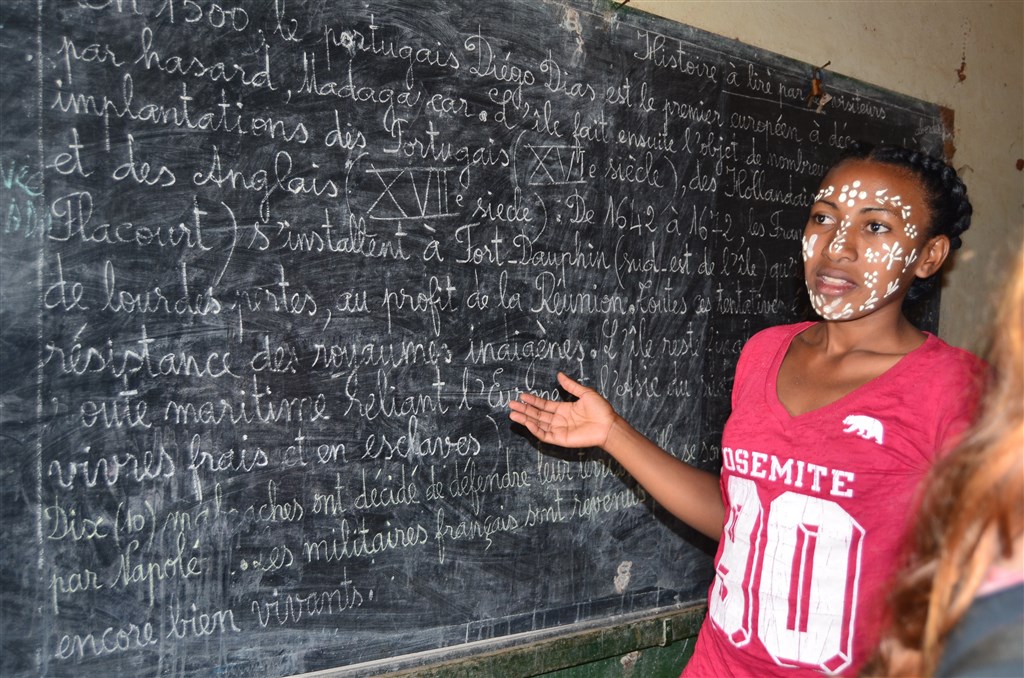 Histoire à lire par visiteurs
En 1500, le portugais Diégo Dias est le premier européen à
par hasard, Madagascar. L'île fait ensuite l'objet de
implantations des Portugais (XVIe siècle), des
et des Anglais (XVIIe siècle). De 1642 à 1672, les
Flacourt) s'installent à Fort-Dauphin (sud-est de l'île)
de lourdes pertes, au profit de la Réunion. Toutes ces
résistance des royaumes indigènes. L'île reste
route maritime reliant l'Europe l'Asie
vivres frais et en esclaves)
Dix (10) ont décidé de défendre leur se
par Les militaires français sont revenus
encore bien vivants.
YOSEMITE
90